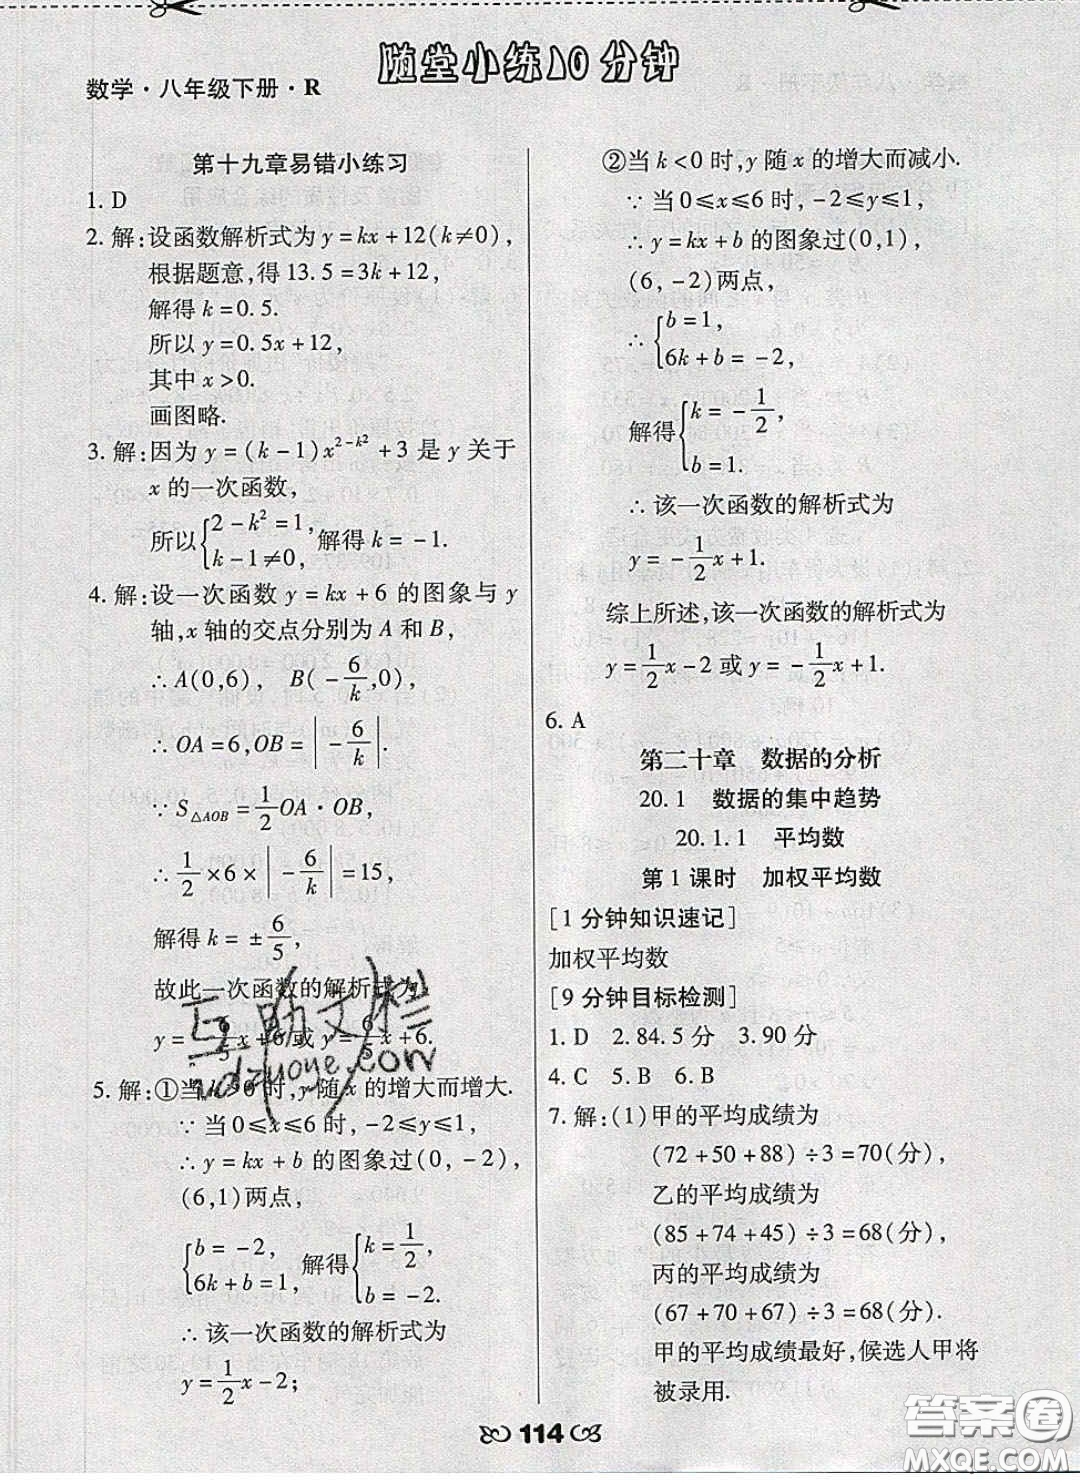 随堂小练10分钟
数学·八年级下册·R
第十九章易错小练习
1. D
2. 解:设函数解析式为y=kx+12(k≠0),
根据题意,得13.5=3k+12,
解得k=0.5.
所以y=0.5x+12,
其中x>0.
画图略.
3. 解:因为y=(k-1)x^{2-k²}+3是y关于
x的一次函数,
所以{2-k²=1, k-1≠0, 解得k=-1.
4. 解:设一次函数y=kx+6的图象与y
轴,x轴的交点分别为A和B,
∴A(0,6), B(-6/k,0),
∴OA=6,OB=|-6/k|.
∵S△AOB=1/2OA·OB,
∴1/2×6×|-6/k|=15,
解得k=±6/5,
故此一次函数的解析式为
y=-6/5x+6或y=6/5x+6.
5. 解:①当k>0时,y随x的增大而增大.
∵当0≤x≤6时,-2≤y≤1,
∴y=kx+b的图象过(0,-2),
(6,1)两点,
{b=-2, 6k+b=1, 解得{k=1/2, b=-2.
∴该一次函数的解析式为
y=1/2x-2;
②当k<0时,y随x的增大而减小.
∵当0≤x≤6时,-2≤y≤1,
∴y=kx+b的图象过(0,1),
(6,-2)两点,
∴{b=1, 6k+b=-2,
解得{k=-1/2, b=1.
∴该一次函数的解析式为
y=-1/2x+1.
综上所述,该一次函数的解析式为
y=1/2x-2或y=-1/2x+1.
6. A
第二十章 数据的分析
20.1 数据的集中趋势
20.1.1 平均数
第1课时 加权平均数
[1分钟知识速记]
加权平均数
[9分钟目标检测]
1. D 2. 84.5分 3. 90分
4. C 5. B 6. B
7. 解:(1)甲的平均成绩为
(72+50+88)÷3=70(分),
乙的平均成绩为
(85+74+45)÷3=68(分),
丙的平均成绩为
(67+70+67)÷3=68(分).
甲的平均成绩最好,候选人甲将
被录用.
114
互助文档
hdzuoye.com
答案圈
MXQE.COM